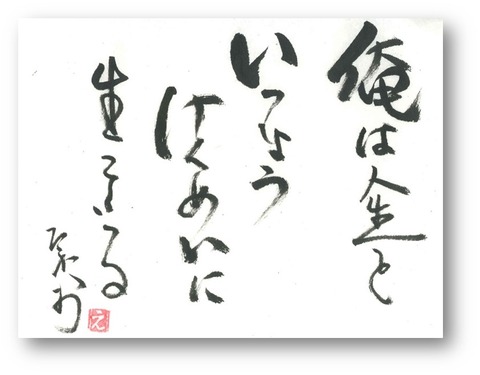 俺は人生を
いっしょう
けんめいに
生きる
え